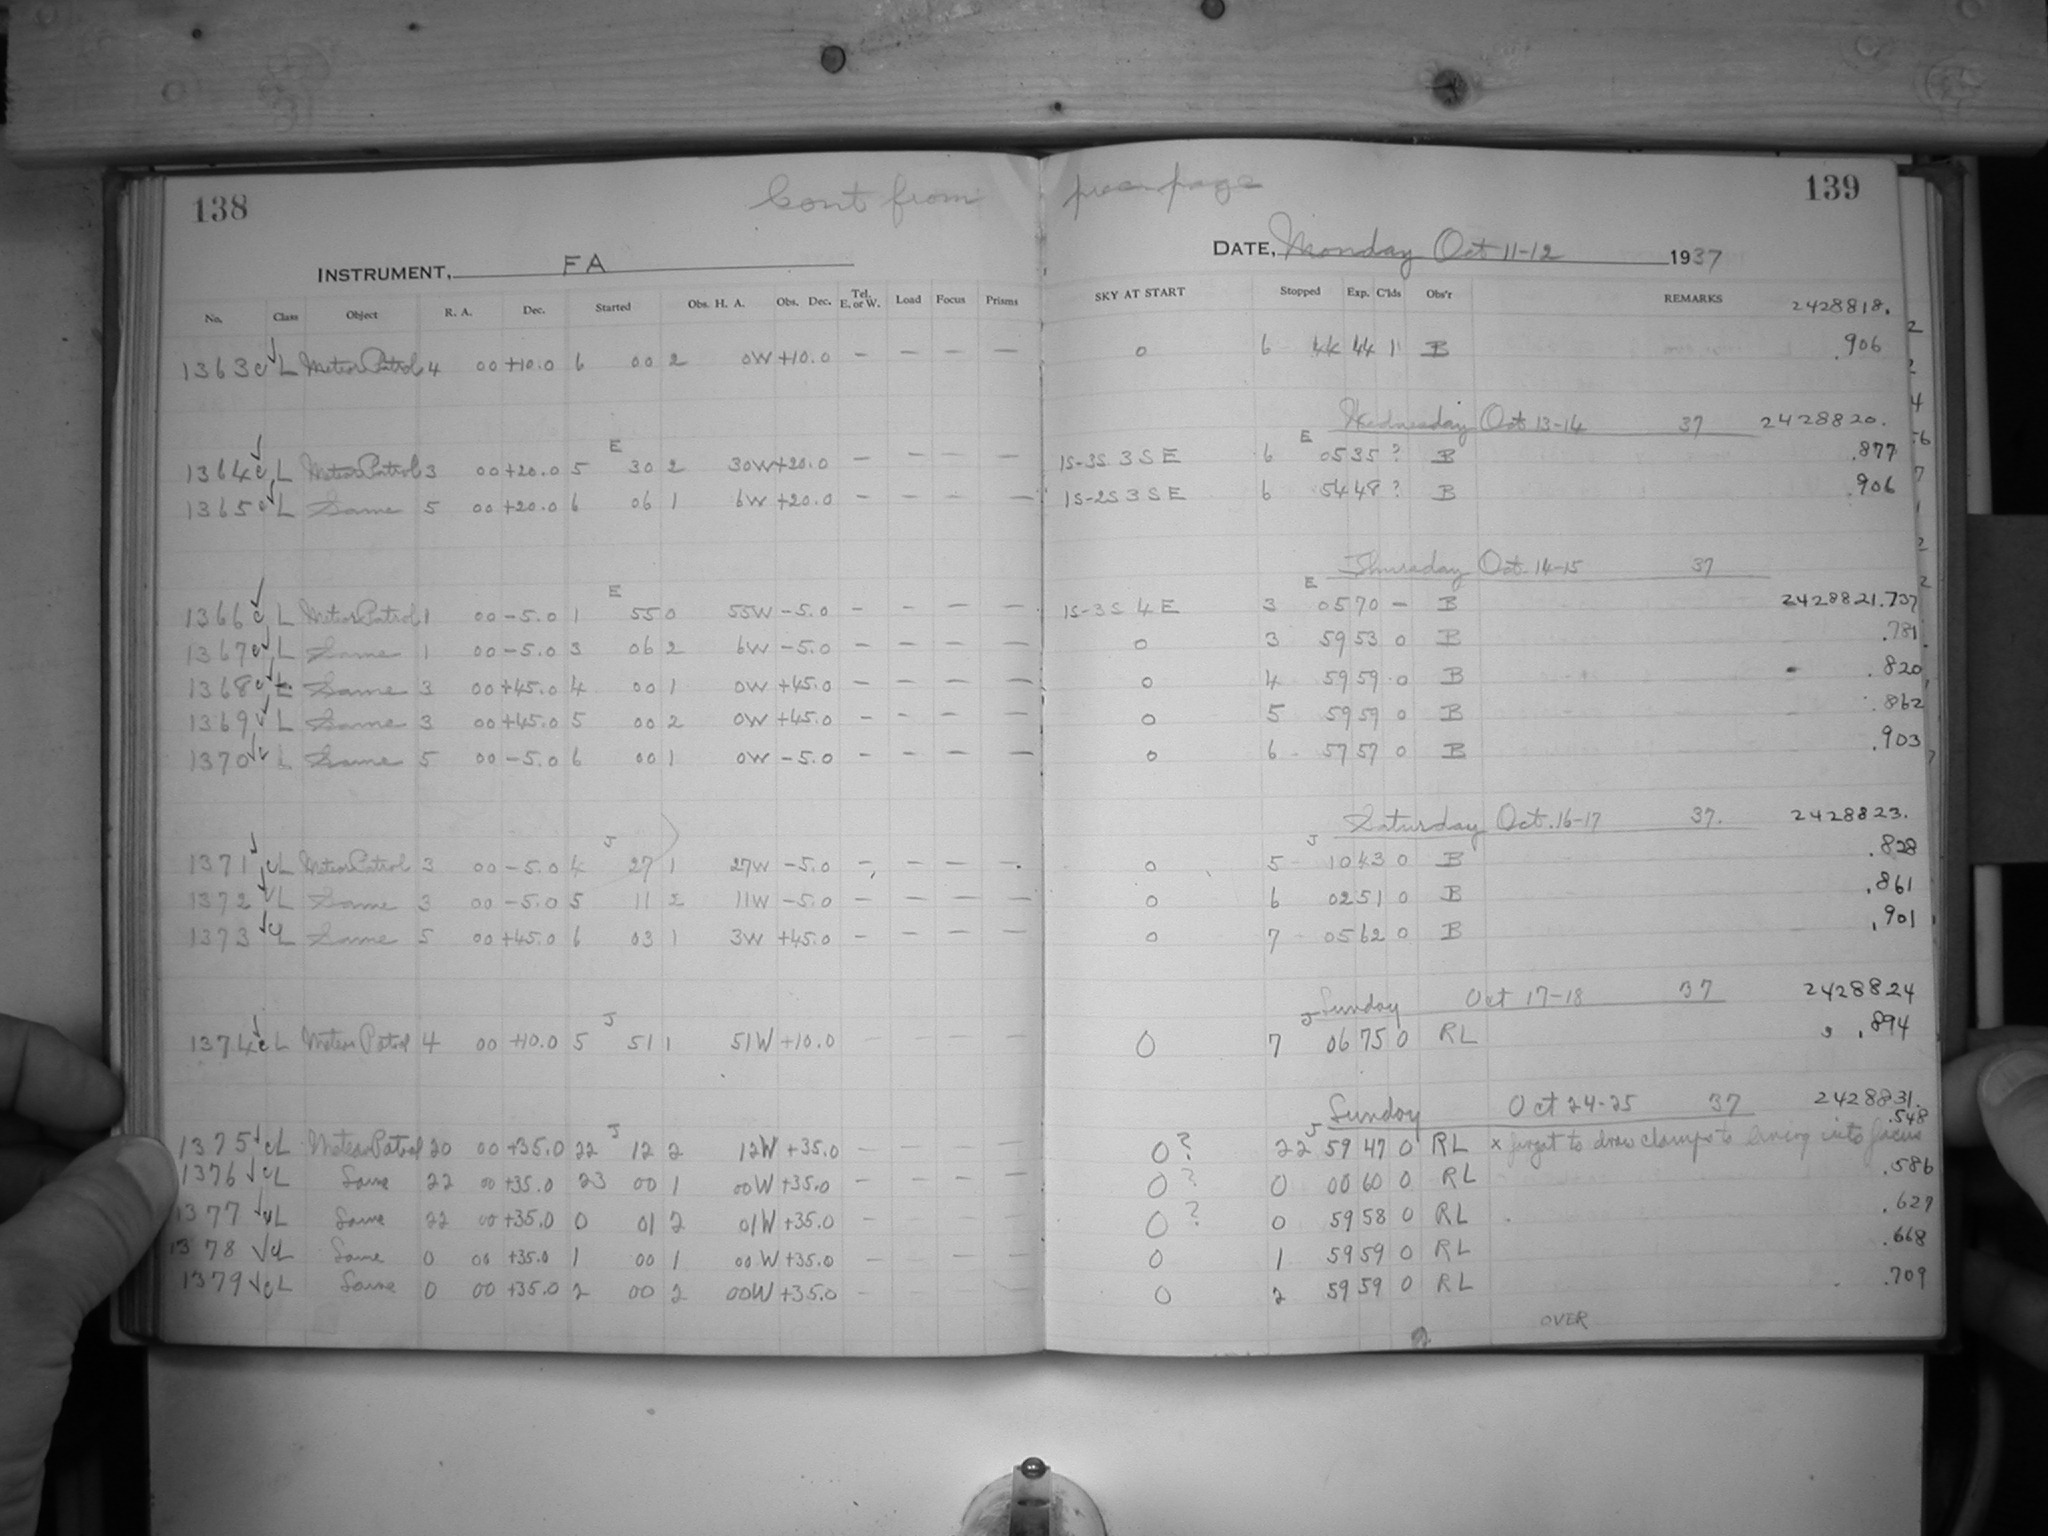 138 Cont from prev. page 139
INSTRUMENT, FA DATE, Monday Oct 11-12 1937
No. Class Object R. A. Dec. Started Obs. H. A. Obs. Dec. Tel. E. or W. Load Focus Prisms SKY AT START Stopped Exp. C'lds Obs'r REMARKS 2428818.
1363 c L Meteor Patrol 4 00 +10.0 6 00 2 0W +10.0 — — — — 0 6 44 44 1 B .906
Wednesday Oct 13-14 37 2428820.
1364 c L Meteor Patrol 3 00 +20.0 5 E 30 2 30W +20.0 — — — — 1S-3S 3 S E 6 E 05 35 ? B .877
1365 c L Same 5 00 +20.0 6 06 1 6W +20.0 — — — — 1S-2S 3 S E 6 54 48 ? B .906
Thursday Oct. 14-15 37
1366 c L Meteor Patrol 1 00 -5.0 1 E 55 0 55W -5.0 — — — — 1S-3S 4 E 3 E 05 70 — B 2428821.737
1367 c L Same 1 00 -5.0 3 06 2 6W -5.0 — — — — 0 3 59 53 0 B .781
1368 c L Same 3 00 +45.0 4 00 1 0W +45.0 — — — — 0 4 59 59 0 B .820
1369 c L Same 3 00 +45.0 5 00 2 0W +45.0 — — — — 0 5 59 59 0 B .862
1370 c L Same 5 00 -5.0 6 00 1 0W -5.0 — — — — 0 6 57 57 0 B .903
Saturday Oct. 16-17 37. 2428823.
1371 c L Meteor Patrol 3 00 -5.0 4 J 27 1 27W -5.0 — — — — 0 5 J 10 43 0 B .828
1372 c L Same 3 00 -5.0 5 11 2 11W -5.0 — — — — 0 6 02 51 0 B .861
1373 c L Same 5 00 +45.0 6 03 1 3W +45.0 — — — — 0 7 05 62 0 B .901
Sunday Oct 17-18 37 2428824
1374 c L Meteor Patrol 4 00 +10.0 5 J 51 1 51W +10.0 — — — — 0 7 J 06 75 0 RL .894
Sunday Oct 24-25 37 2428831.
1375 c L Meteor Patrol 20 00 +35.0 22 J 12 2 12W +35.0 — — — — 0? 22 J 59 47 0 RL x forgot to draw clamps to bring into focus .548
1376 c L Same 22 00 +35.0 23 00 1 00W +35.0 — — — — 0? 0 00 60 0 RL .586
1377 c L Same 22 00 +35.0 0 01 2 01W +35.0 — — — — 0? 0 59 58 0 RL .627
1378 c L Same 0 00 +35.0 1 00 1 00W +35.0 — — — — 0 1 59 59 0 RL .668
1379 c L Same 0 00 +35.0 2 00 2 00W +35.0 — — — — 0 2 59 59 0 RL .709
OVER